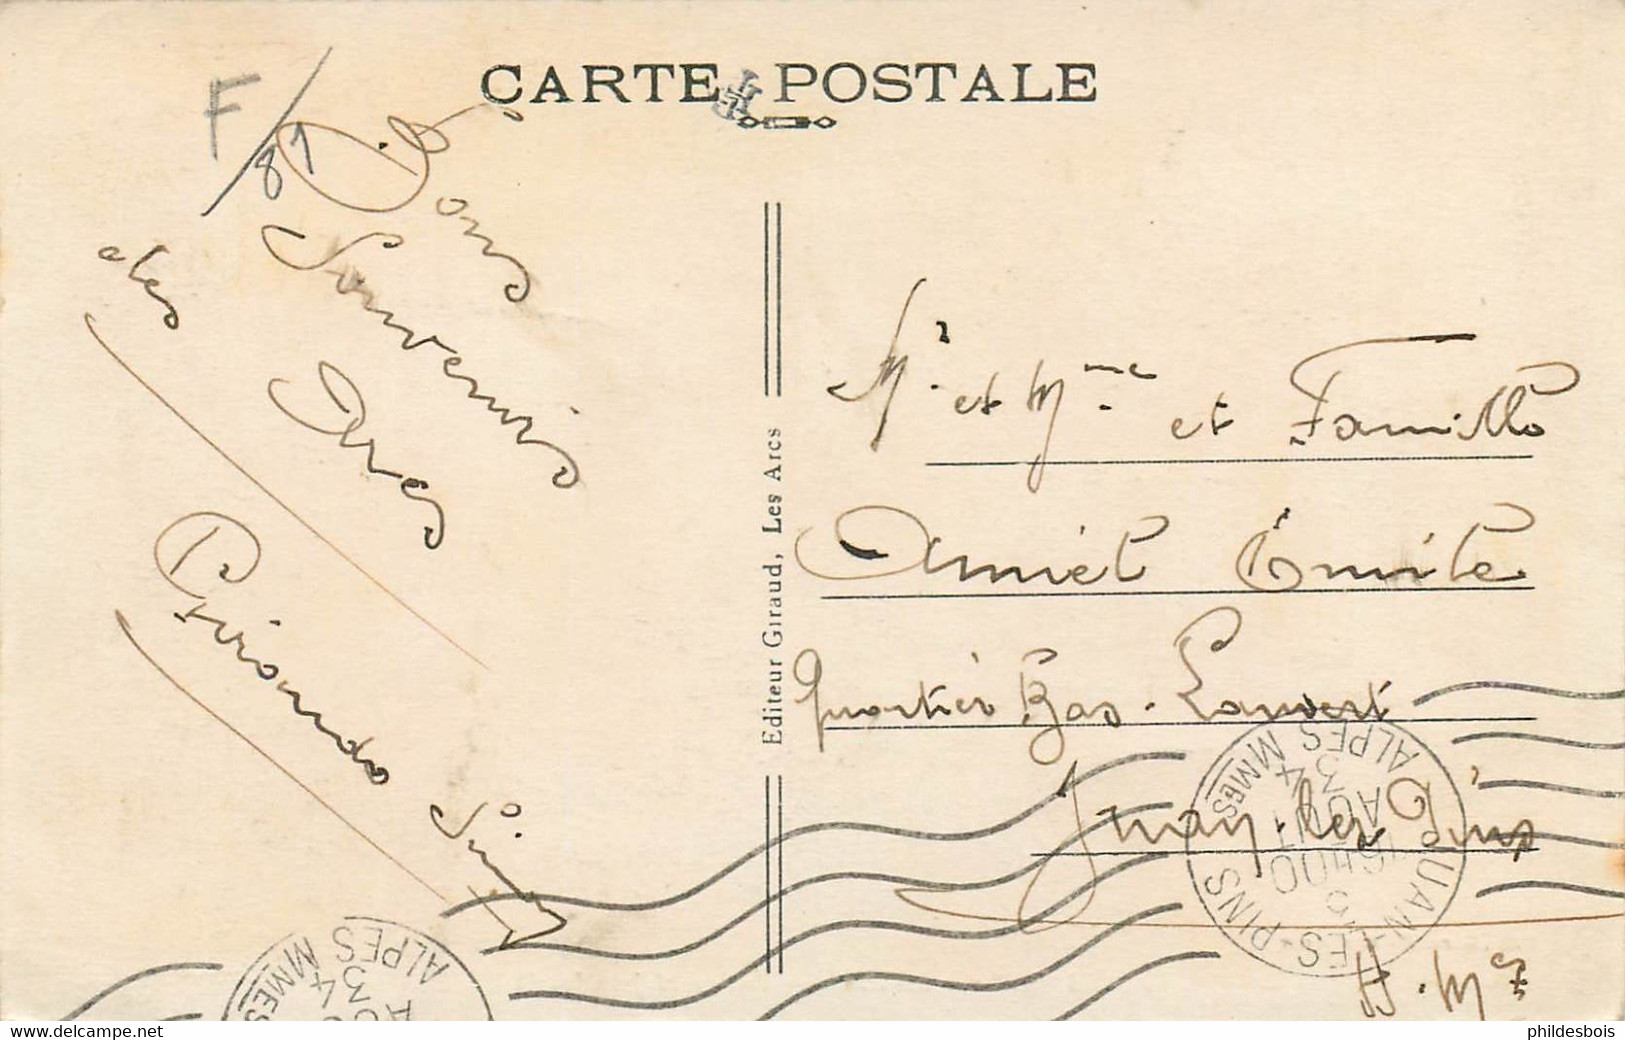 CARTE POSTALE
F/81
Bons
Souvenirs
des Arcs
Editeur Giraud, Les Arcs
Mr. et Mme. et Famille
Amiel Émile
quartier Bas-Lauvert
Juan-les-Pins
A.Mmes
JUAN-LES-PINS
ALPES MMES
16H00
3
AOUT
34
ALPES
MMES
34
phildesbois